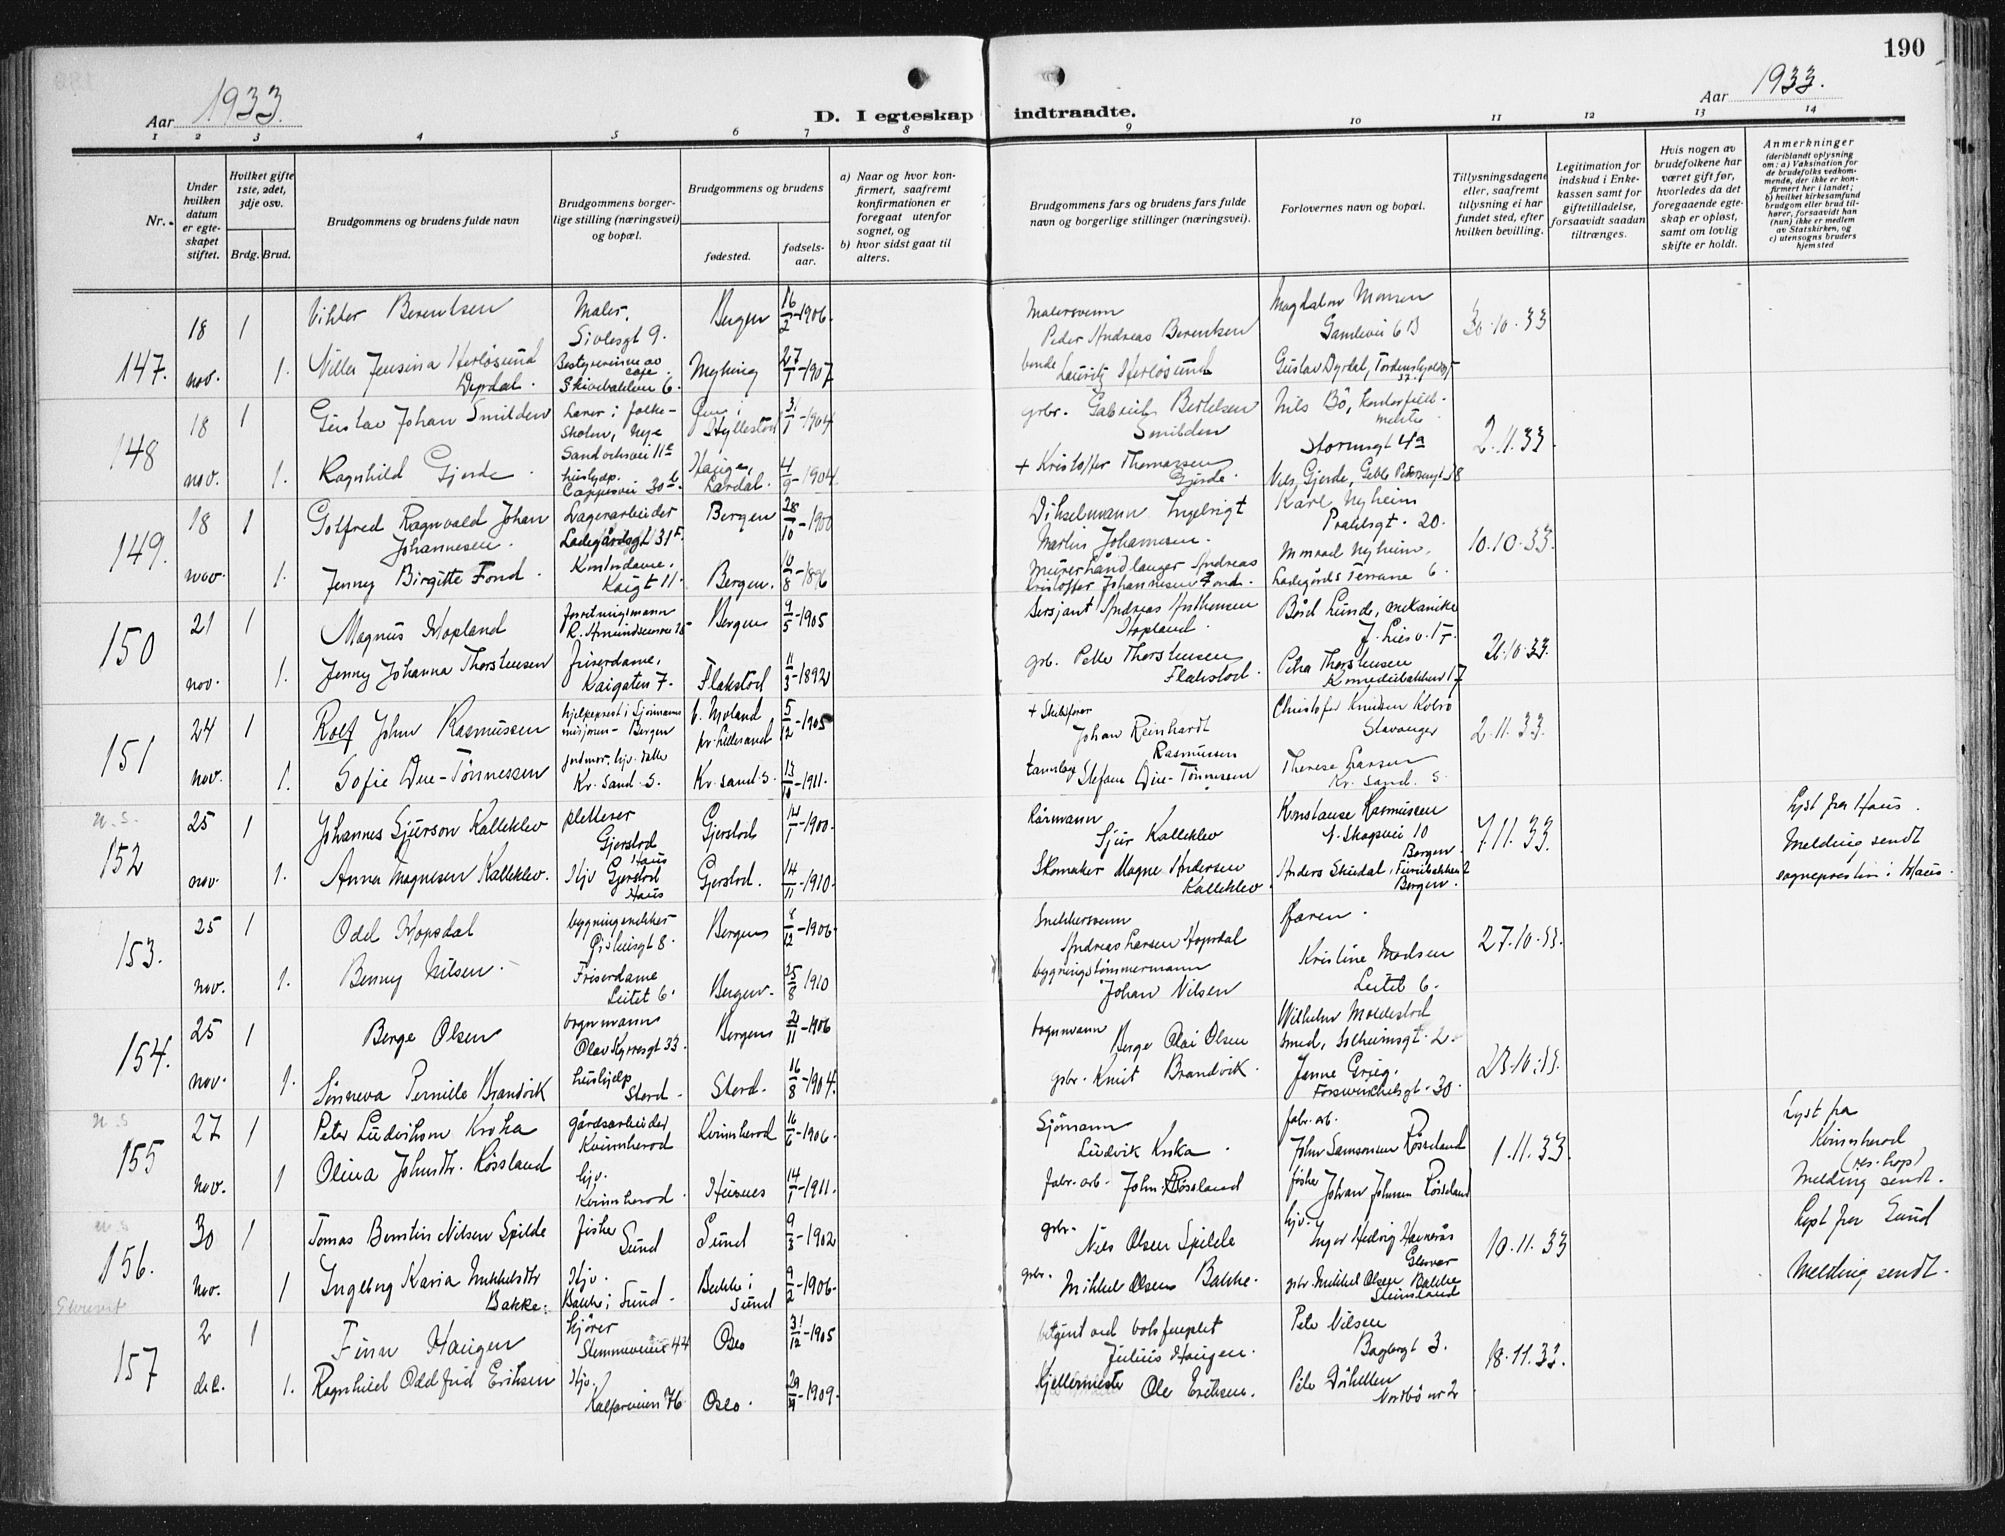 190
Aar 1933.
D. I egteskap indtraadte.
Aar 1933.
1 2 3 4 5 6 7 8 9 10 11 12 13 14
Nr.
Under hvilken datum er egteskapet stiftet.
Hvilket gifte 1ste, 2det, 3dje osv.
Brdg. Brud.
Brudgommens og brudens fulde navn
Brudgommens borgerlige stilling (næringsvei) og bopæl.
Brudgommens og brudens
fødested.
fødselsaar.
a) Naar og hvor konfirmert, saafremt konfirmationen er foregaat utenfor sognet, og
b) hvor sidst gaat til alters.
Brudgommens fars og brudens fars fulde navn og borgerlige stillinger (næringsvei).
Forlovernes navn og bopæl.
Tillysningsdagene eller, saafremt tillysning ei har fundet sted, efter hvilken bevilling.
Legitimation for indskud i Enkekassen samt for giftetilladelse, forsaavidt saadan tiltrænges.
Hvis nogen av brudefolkene har været gift før, hvorledes da det foregaaende egteskap er opløst, samt om lovlig skifte er holdt.
Anmerkninger
(deriblandt oplysning om: a) Vaksination for de brudefolks vedkommende, der ikke er konfirmert her i landet; b) hvilket kirkesamfund brudgom eller brud tilhører, forsaavidt han (hun) ikke er medlem av Statskirken, og c) utensogns bruders hjemsted
147. 18 nov. 1 Viktor Berentsen Maler, Sivlesgt 9. Bergen 16/2-1906. Malersvenn Peder Andreas Berentsen Magdalon Monsen Gamlevei 6 B 30.10.33
1. Jensina Herløsund Dyrdal. Bestyrerinne av cafe Skivebakken 6. 27/1-1907 bonde Lauritz Herløsund Gustav Dyrdal,
148 18 nov. 1 Gustav Johan Smilden Lærer i folkeskolen, Nye Sandviksvei 11 Hyllestad 31/1-1904 grbr. Gabriel Bertelsen Smilden Nils Bö, 2.11.33.
1. Ragnhild Gjerde. hushjelp. 30 Hauge, Lærdal. 4/9-1904. + Kristoffer Thomassen Gjerde. Nils Gjerde,
149. 18 nov. 1 Golfred Ragnvald Johan Johannesen. Lagerarbeider Ladegårdsgt 31 Bergen 28/10-1900 Ingebrigt Martin Johannesen. Karl Nyheim Prahlsgt. 20. 10.10.33.
1. Jenny Birgitte Fond. Kontordame, Kaigt 11. Bergen. 10/8-1896 Murerhåndlanger Andreas Kristoffer Johannesen Fond. Monrad Nyheim, Ladegårds Terrasse 6.
150 21 nov. 1 Magnus Hopland forretningsmann R. Amundsensvei Bergen 9/5-1905 Sersjant Andreas Hopland. Bård Lunde, mekaniker 21.10.33.
1. Jenny Johanna Thorstensen friserdame, Kaigaten 7. Flakstad 11/3-1892 grb. Thorstensen Flakstad. Petra Thorstensen Komediebakken 17
151 24 nov. 1 Rolf John Rasmussen hjelpeprest i Sjømannsmisjonen - Bergen V. Moland pr. Lillesand 5/12-1905 + Skibsfører Johan Reinhardt Rasmussen Christofer Knudsen Stavanger 2.11.33.
1. Sofie Due-Tönnessen jordmor, Kr. Sand. S. Kr. Sand. S. 13/10-1911. tannlæge Stefan Due-Tönnessen Therese Larsen Kr. Sand. S.
u. s. 152 25 nov. 1 Johannes Sjurson Kalleklev pletterer Gjerstad Haus Gjerstad 14/1-1900. Rörmann Sjur Kalleklev Konstanse Rasmussen J. Skogsvei 10 Bergen 7.11.33. Lyst fra Haus.
1. Anna Magnesen Kalleklev. Hjv Gjerstad Haus Gjerstad. 14/11-1910. Skomaker Magne Andersen Kalleklev. Anders Skudal, Bergen. Melding sendt sogneprestin i Haus.
153. 25 nov. 1 Odd Hopsdal bygningsnekker Bergen 8/12-1906. Snekkersvenn Andreas Larsen Hopsdal Faren. 27.10.33.
1. Benny Nilsen. Friserdame Leitet 6. Bergen. 25/8 1910 bygningstömmermann Johan Nilsen Kristine Madsen Leitet 6.
154. 25 nov. 1 Berge Olsen vognmann Olav Kyrresgt 33. Bergen 2/11-1906 vognmann Berge Olai Olsen Wilhelm Moldestad smed, Solheimsgt. 2 23.10.33.
1. Sönneva Pernille Brandvik hushjelp Stord. Stord. 16/8-1904. gsbr. Knut Brandvik. Janna Grieg. 30.
u. s 155 27 nov. 1 Peter Ludvikson Kroka gårdsarbeider Kvinnherad Kvinnherad 16/6-1906. Sjömann Ludvik Kroka. fabr. arb. John Samsonsen Rössland 1.11.33. Lyst fra Kvinnherad
1 Olina Johnsdtr. Rössland hjv. Kvinnherad. Husnes 14/1-1911. fabr. arb. John Rössland fisker Johan Johnsen Rössland Melding sendt.
u. s 156. 30 nov. 1 Tomas Bernstin Nilsen Spilde fisker Sund Sund 9/3-1902 grbr. Nils Olsen Spilde hjv. Inger Hedvig 10.11.33 Lyst fra Sund
1 Ingeborg Karia Mikkelsdtr Bakke. Hjv. Bakke i Sund. Bakke i Sund 9/2-1906. grbr. Mikkel Olsen Bakke. gsbr. Mikkel Olsen Bakke Steinsland Melding sendt.
157 2 dec. 1 Finn Haugen kjører Stemmeveien 44 Oslo 31/12-1905 Julius Haugen. Peter Nilsen 3. 18.11.33.
1. Ragnhild Oddfrid Eriksen Hjv. Kalfarveien 76 Oslo. 29/4-1909. Kjellermester Ole Eriksen. Nordbö nr 2